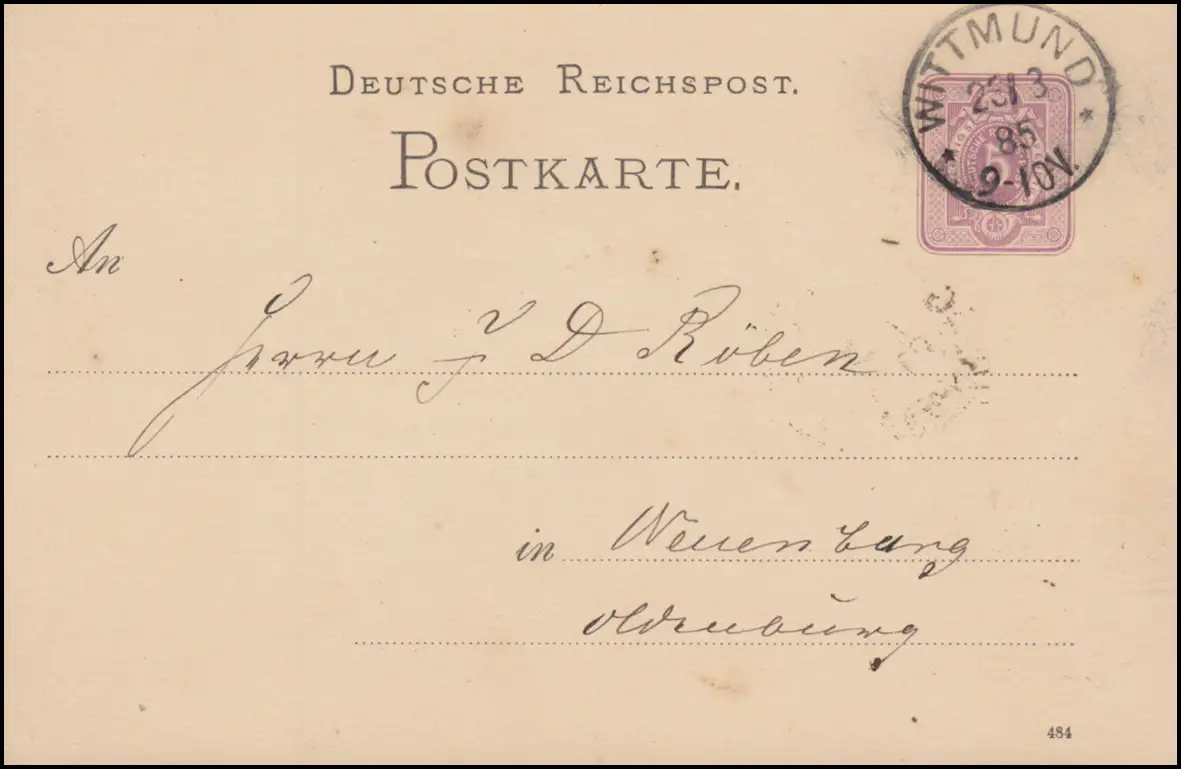 DEUTSCHE REICHSPOST.
POSTKARTE.
WITTMUND
3
85
9-10V.
5
An
Herrn J D Röben
in Neuenburg
Oldenburg
484